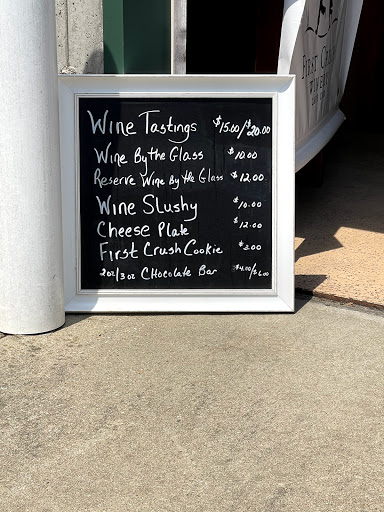 Wine Tastings $15.00/$20.00
Wine By the Glass $10.00
Reserve Wine By the Glass $12.00
Wine Slushy $10.00
Cheese Plate $12.00
First Crush Cookie $3.00
2oz/3oz Chocolate Bar $4.00/$6.00
First Crush
Winery